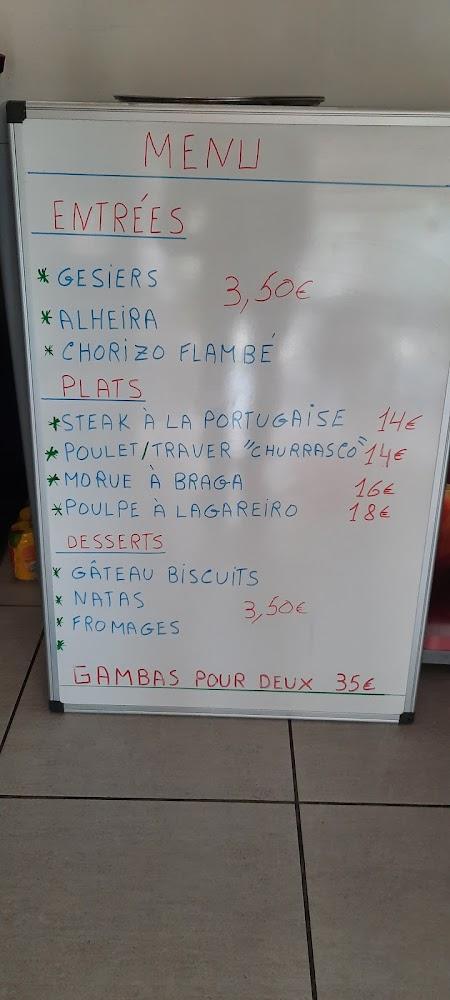 MENU
ENTRÉES
* GESIERS 3,50€
* ALHEIRA
* CHORIZO FLAMBÉ
PLATS
* STEAK À LA PORTUGAISE 14€
* POULET/TRAVER "CHURRASCO" 14€
* MORUE À BRAGA 16€
* POULPE À LAGAREIRO 18€
DESSERTS
* GÂTEAU BISCUITS
* NATAS 3,50€
* FROMAGES
*
GAMBAS POUR DEUX 35€